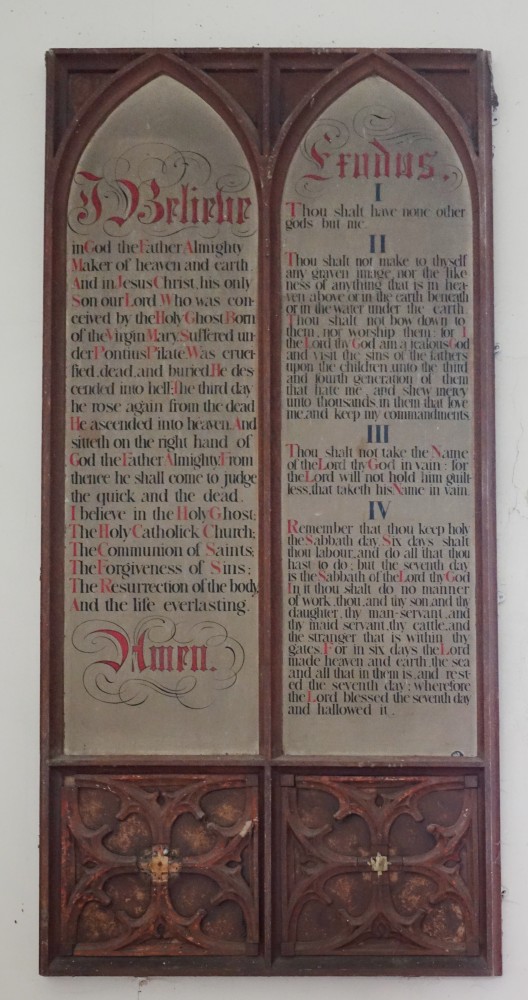 I Believe
in God the Father Almighty
Maker of heaven and earth.
And in Jesus Christ, his only
Son our Lord Who was con-
ceived by the Holy Ghost Born
of the Virgin Mary. Suffered un-
der Pontius Pilate Was cruci-
fied, dead, and buried. He des-
cended into hell: the third day
he rose again from the dead
He ascended into heaven. And
sitteth on the right hand of
God the Father Almighty: From
thence he shall come to judge
the quick and the dead.
I believe in the Holy Ghost;
The Holy Catholick Church;
The Communion of Saints;
The Forgiveness of Sins;
The Resurrection of the body,
And the life everlasting.
Amen.
Exodus.
I
Thou shalt have none other
gods but me
II
Thou shalt not make to thyself
any graven image, nor the like
ness of anything that is in hea-
ven above or in the earth beneath
or in the water under the earth.
Thou shalt not bow down to
them, nor worship them: for I
the Lord thy God am a jealous God
and visit the sins of the fathers
upon the children unto the third
and fourth generation of them
that hate me, and shew mercy
unto thousands in them that love
me, and keep my commandments
III
Thou shalt not take the Name
of the Lord thy God in vain: for
the Lord will not hold him guilt-
less, that taketh his Name in vain.
IV
Remember that thou keep holy
the Sabbath day Six days shalt
thou labour, and do all that thou
hast to do; but the seventh day
is the Sabbath of the Lord thy God
In it thou shalt do no manner
of work, thou, and thy son, and thy
daughter, thy man-servant, and
thy maid servant, thy cattle, and
the stranger that is within thy
gates. For in six days the Lord
made heaven and earth, the sea
and all that in them is, and rest-
ed the seventh day; wherefore
the Lord blessed the seventh day
and hallowed it.